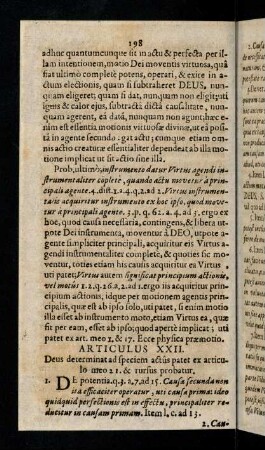 198
adhuc quantumcunque sit in actu & perfecta per il-
lam intentionem, motio Dei moventis virtuosa, quâ
fiat ultimo completè potens, operati, & exire in a-
ctum electionis, quam si subtraheret DEUS, nun-
quam eligeret; quam si dat, nunquam non eligit; uti
ignis & calor ejus, subtractâ dictâ causalitate, nun-
quam agerent, eâ datâ, nunquam non agunt; hæc e-
nim est essentia motionis virtuosæ divinæ, ut eâ posi-
tâ in agente secundo agat actu; cumque etiam om-
nis actio creaturæ essentialiter dependeat ab illa mo-
tione implicat ut sit actio sine illa.
Prob. ultimò; instrumento datur Virtus agendi in-
strumentaliter copletè, quando actu movetur à prin-
cipali agente 4. dist. 1. 2. 4. q. 2. ad 2. Virtus instrumen-
talis acquiritur instrumento ex hoc ipso, quod move-
tur à principali agente. 3. p. q. 62. a. 4. ad 3. ergo ex
hoc, quod causa necessaria, contingens, & libera ut-
pote Dei instrumenta, moventur à DEO, utpote a-
gente simpliciter principali, acquiritur eis Virtus a-
gendi instrumentaliter completè, & quoties sic mo-
ventur, toties etiam his causis acquiritur eis Virtus
uti patet; Virtus autem significat principium actionis,
vel motus 1. 2. q. 26. a. 2. ad 1. ergo iis acquiritur prin-
cipium actionis, idque per motionem agentis princi-
palis, quæ est ab ipso solo, uti patet, si enim motio
illa esset ab instrumento moto, etiam Virtus ea, quæ
fit per eam, esset ab ipso; quod apertè implicat; uti
patet ex art. meo 1. & 17. Ecce physica præmotio.
ARTICULUS XXII.
Deus determinat ad speciem actûs patet ex articu-
lo meo 21. & rursus probatur.
1. DE potentia. q. 3. a. 7. ad 15. Causa secunda non
ita efficaciter operatur, uti causa prima: ideo
quidquid perfectionis est in effectu, principaliter re-
ducitur in causam primam. Item l. c. ad 13.
2. Cau-